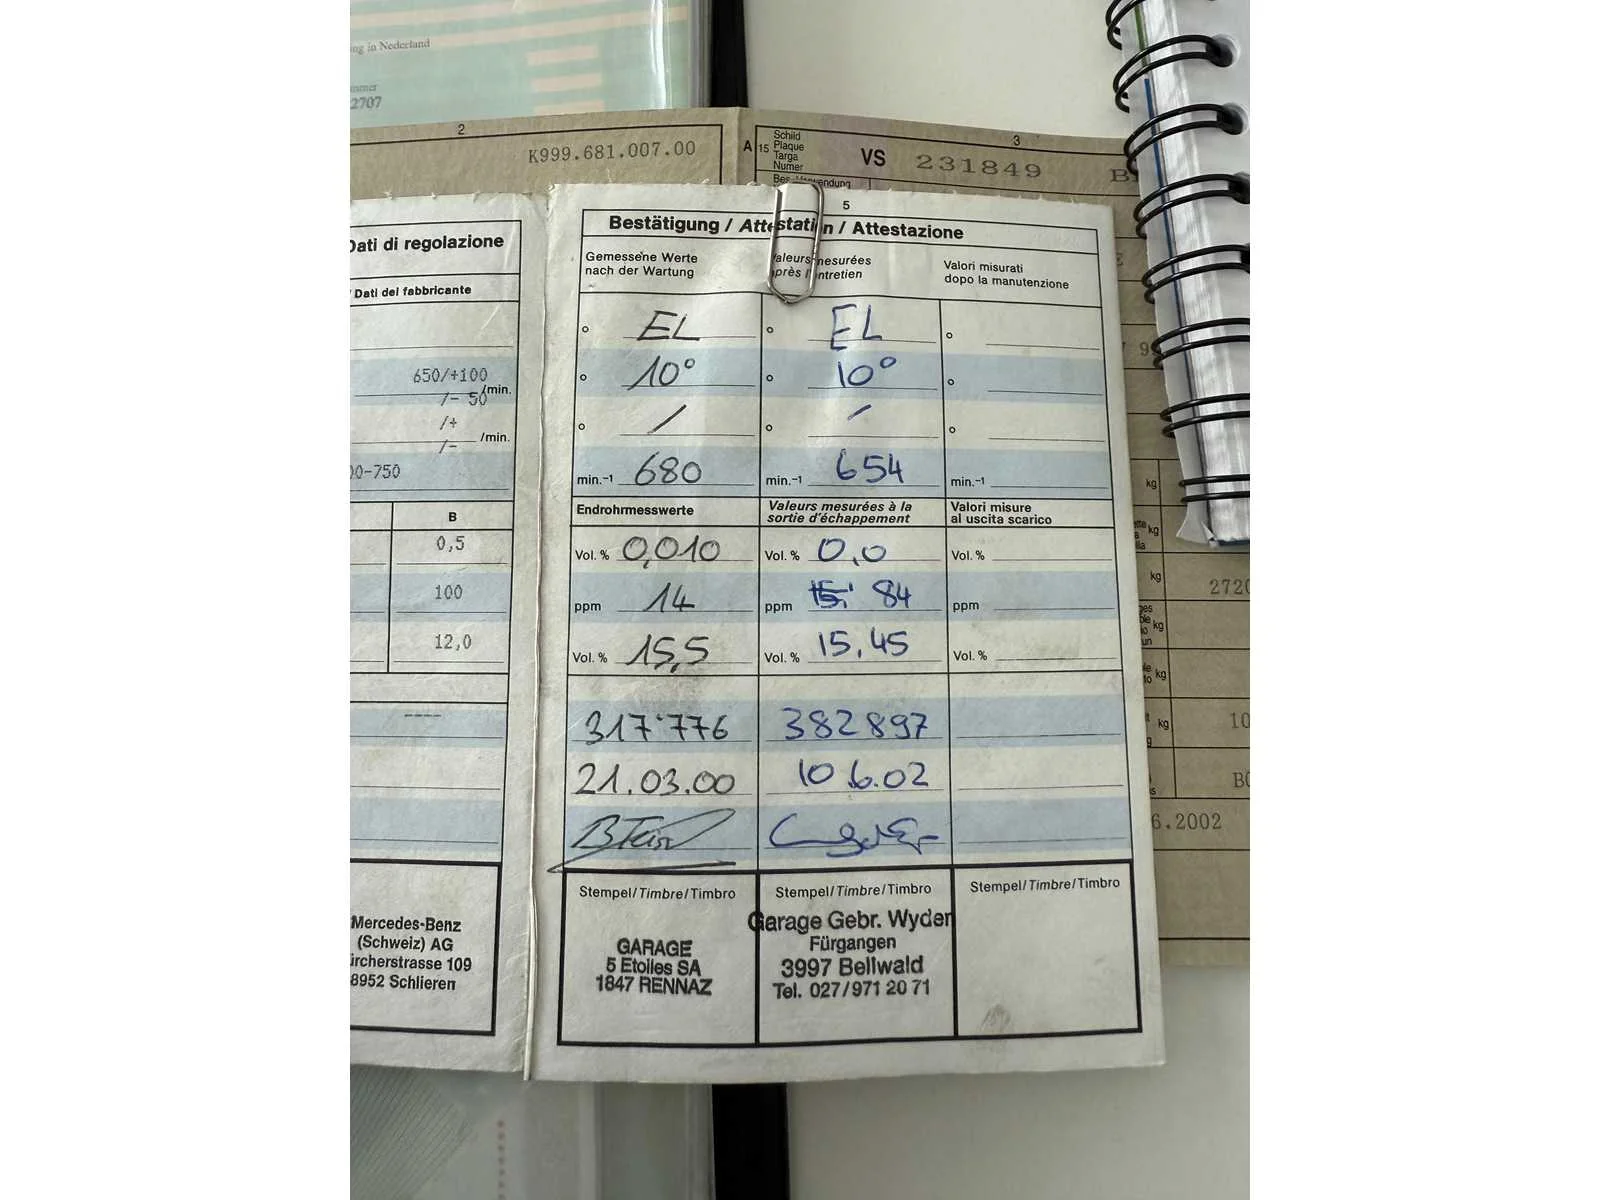 ng in Nederland
mmer
2707
2
K999.681.007.00
3
A 15 Schild
Plaque
Targa
Numer
VS 231849
B
5
Dati di regolazione
/ Dati del fabbricante
650/+100
/- 50 /min.
/+
/- /min.
00-750
B
0,5
100
12,0
----
Mercedes-Benz
(Schweiz) AG
ürcherstrasse 109
8952 Schlieren
Bestätigung / Attestation / Attestazione
Gemessene Werte
nach der Wartung
Valeurs mesurées
après l'entretien
Valori misurati
dopo la manutenzione
° EL ° EL °
° 10° ° 10° °
° / ° / °
min.-1 680 min.-1 654 min.-1
Endrohrmesswerte
Valeurs mesurées à la
sortie d'échappement
Valori misure
al uscita scarico
Vol. % 0,010 Vol. % 0,0 Vol. %
ppm 14 ppm 84 ppm
Vol. % 15,5 Vol. % 15,45 Vol. %
317'776 382897
21.03.00 10 6.02
Stempel/Timbre/Timbro Stempel/Timbre/Timbro Stempel/Timbre/Timbro
GARAGE
5 Etoiles SA
1847 RENNAZ
Garage Gebr. Wyden
Fürgangen
3997 Bellwald
Tel. 027/971 20 71
kg
kg
kg
2720
kg
kg
kg
10
6.2002